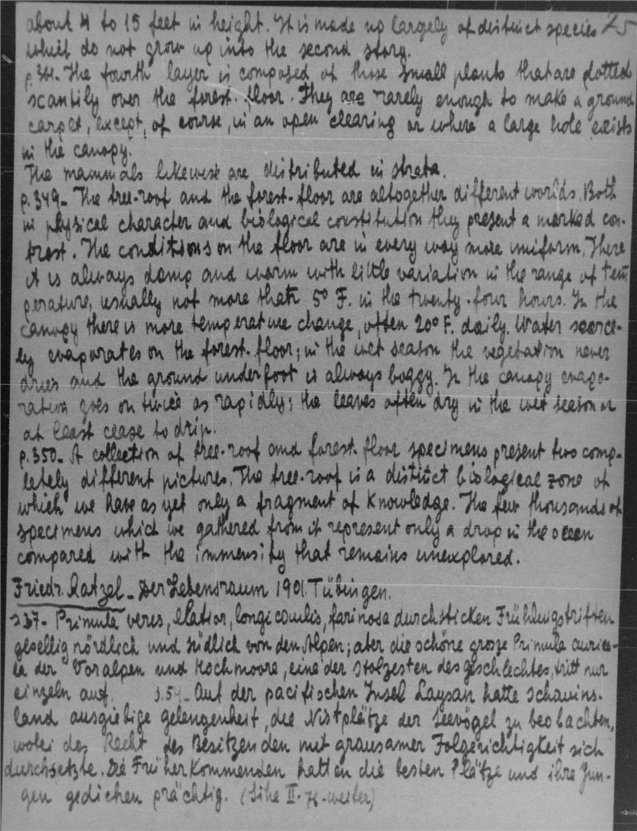 about 4 to 15 feet in height. It is made up largely of distinct species 25
which do not grow up into the second story.
p.344. The fourth layer is composed of those small plants that are dotted
scantily over the forest-floor. They are rarely enough to make a ground
carpet, except, of course, in an open clearing or where a large hole exists
in the canopy.
The mammals likewise are distributed in strata.
p.349- The tree-roof and the forest-floor are altogether different worlds. Both
in physical character and biological constitution they present a marked con-
trast. The conditions on the floor are in every way more uniform. There
it is always damp and warm with little variation in the range of tem
perature, usually not more than 5° F. in the twenty-four hours. In the
canopy there is more temperature change, often 20° F. daily. Water scarce-
ly evaporates on the forest-floor; in the wet season the vegetation never
dries and the ground underfoot is always boggy. In the canopy evapo-
ration goes on twice as rapidly; the leaves often dry in the wet season or
at least cease to drip.
p.350- A collection of tree-roof and forest-floor specimens present two comp-
letely different pictures. The tree-roof is a distinct biological zone of
which we have as yet only a fragment of knowledge. The few thousands of
specimens which we gathered from it represent only a drop in the ocean
compared with the immensity that remains unexplored.
Friedr. Ratzel- Der Lebensraum 1901. Tübingen.
S37- Primula veres, elatior, longicaulis, farinosa durchsticken Frühlingstriften
gesellig nördlich und südlich von den Alpen; aber die schöne grosse Primula auricu-
la der Voralpen und Hochmoore, eine der stolzesten des geschlechtes, tritt nur
einzeln auf. S.54- Auf der pacifischen Insel Laysan hatte Schauins-
land ausgiebige gelengenheit, die Nistplätze der Seevögel zu beobachten,
wobei des Recht des Besitzenden mit grausamer Folgerichtigkeit sich
durchsetzte. Die Früher Kommenden hatten die besten Plätze und ihre Jun-
gen gediehen prächtig. (Sihe II. weiter)